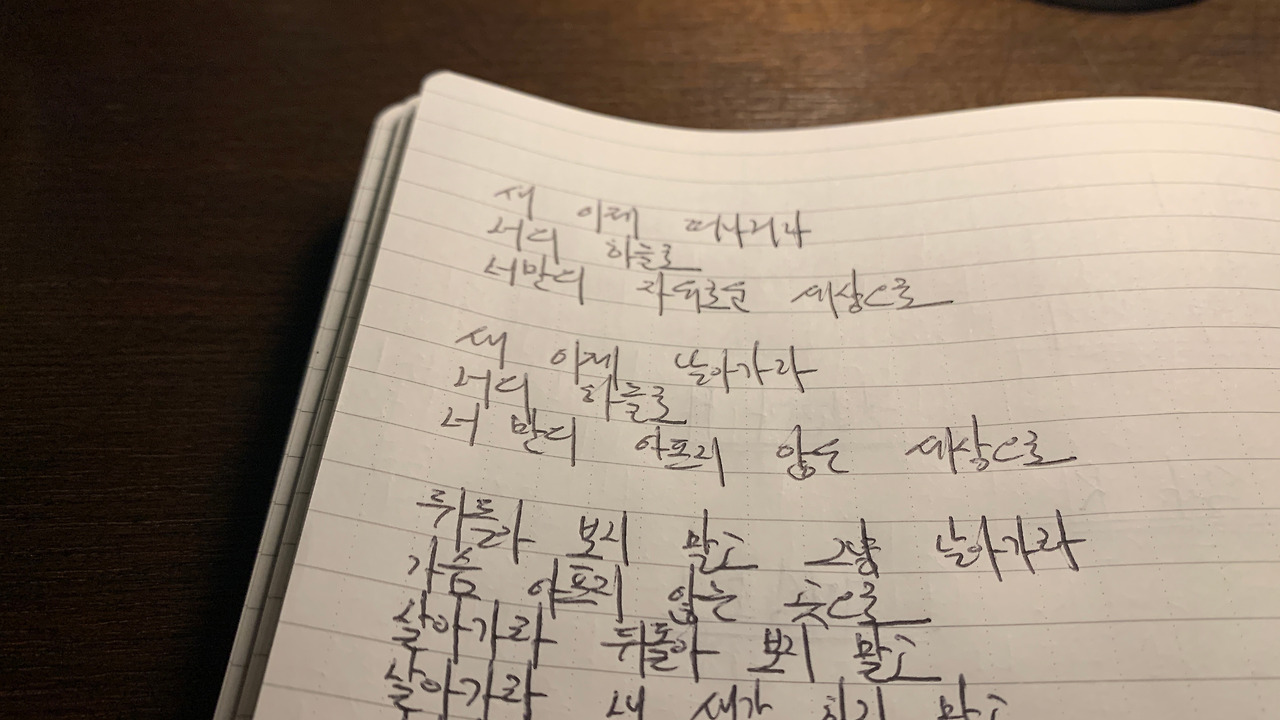 새 이제 떠나리라
너디 하늘로
너만디 자유로운 세상으로
새 이제 날아가라
너디 하늘로
너 만디 아프지 않은 세상으로
뒤돌아 보지 말고 그냥 날아가라
가슴 아프지 않는 곳으로
살아가라 뒤돌아 보지 말고
살아가라 내 새가 하지 말고